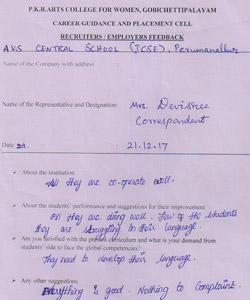 P.K.R.ARTS COLLEGE FOR WOMEN, GOBICHETTIPALAYAM
CAREER GUIDANCE AND PLACEMENT CELL
RECRUITERS / EMPLOYERS FEEDBACK
AVS CENTRAL SCHOOL (ICSE), Perumanallur
Name of the Company with address :
Name of the Representative and Designation: Mrs. Devisree
Correspondent
Date : 21.12.17
➢ About the institution
All they are co-operate well.
➢ About the students' performance and suggestions for their improvement
All they are doing well. Few of the students
they are struggling to their language.
➢ Are you satisfied with the present curriculum and what is your demand from
students' side to face the global competencies?
They need to develop their language.
➢ Any other suggestions
Everything is good. Nothing to complaint.